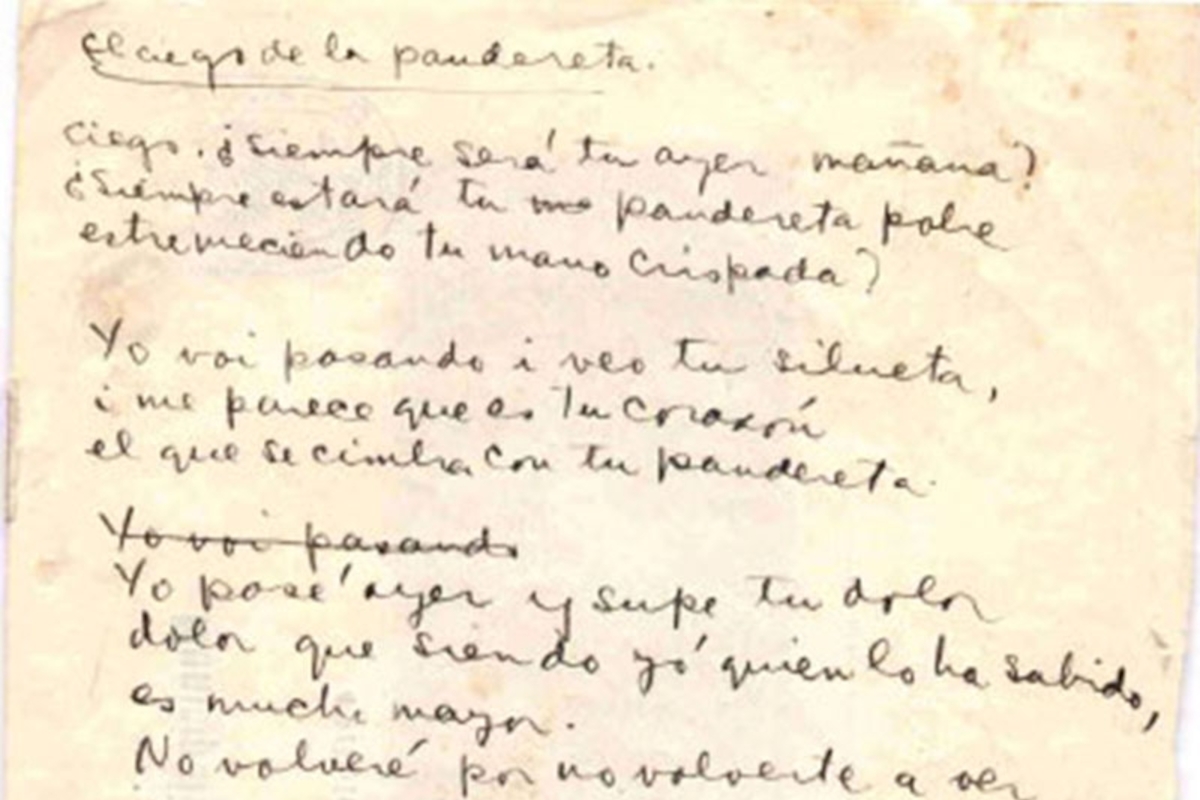 El ciego de la pandereta.
Ciego. ¿siempre será tu ayer mañana?
¿Siempre estará tu pandereta pobre
estremeciendo tu mano crispada?
Yo voi pasando i veo tu silueta,
i me parece que es tu corazón
el que se cimbra con tu pandereta.
Yo voi pasando
Yo pasé ayer y supe tu dolor
dolor que siendo yó quien lo ha sabido,
es mucho mayor.
No volveré por no volverte a ver